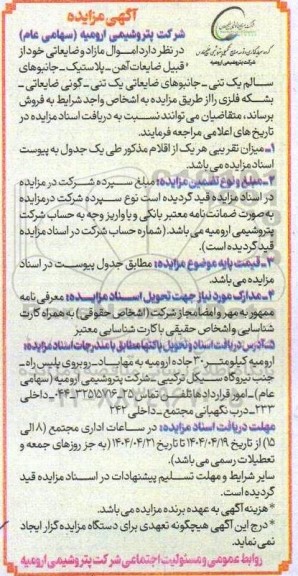 آگهی مزایده
شرکت پتروشیمی ارومیه (سهامی عام)
در نظر دارد اموال مازاد و ضایعاتی خود از
قبیل ضایعات آهن - پلاستیک - جانبوهای
سالم یک تنی - جانبوهای ضایعاتی یک تنی - گونی ضایعاتی -
بشکه فلزی را از طریق مزایده به اشخاص واجد شرایط به فروش
برساند، متقاضیان می توانند نسبت به دریافت اسناد مزایده در
تاریخ های اعلامی مراجعه فرمایند.
۱- میزان تقریبی هر یک از اقلام مذکور طی یک جدول به پیوست
اسناد مزایده می باشد.
۲- مبلغ و نوع تضمین مزایده: مبلغ سپرده شرکت در مزایده
در اسناد مزایده قید گردیده است نوع سپرده شرکت در مزایده
به صورت ضمانت نامه معتبر بانکی و یا واریز وجه به حساب شرکت
پتروشیمی ارومیه می باشد. (شماره حساب شرکت در اسناد مزایده
قید گردیده است).
۳- قیمت پایه موضوع مزایده: مطابق جدول پیوست در اسناد
مزایده می باشد.
۴- مدارک مورد نیاز جهت تحویل اسناد مزایده: معرفی نامه
ممهور به مهر و امضا مجاز شرکت (اشخاص حقوقی) به همراه کارت
شناسایی و اشخاص حقیقی با کارت شناسایی معتبر
۵- آدرس دریافت اسناد و تحویل پاکتها مطابق با مندرجات اسناد مزایده:
ارومیه کیلومتر ۳۰ جاده ارومیه به مهاباد - روبروی پلیس راه -
جنب نیروگاه سیکل ترکیبی - شرکت پتروشیمی ارومیه (سهامی
عام) - امور قراردادها تلفن تماس
۲۳۳ - درب نگهبانی مجتمع - داخلی ۲۴۲
مهلت دریافت اسناد مزایده: در ساعات اداری مجتمع (۸ الی
۱۵) از تاریخ ۱۴۰۴/۰۴/۱۹ تا تاریخ ۱۴۰۴/۰۴/۲۱ (به جز روزهای جمعه و
تعطیلات رسمی می باشد).
سایر شرایط و مهلت تسلیم پیشنهادات در اسناد مزایده قید
گردیده است.
* هزینه آگهی به عهده برنده مزایده می باشد.
* درج این آگهی هیچگونه تعهدی برای دستگاه مزایده گزار ایجاد
نمی نماید.
روابط عمومی و مسئولیت اجتماعی شرکت پتروشیمی ارومیه